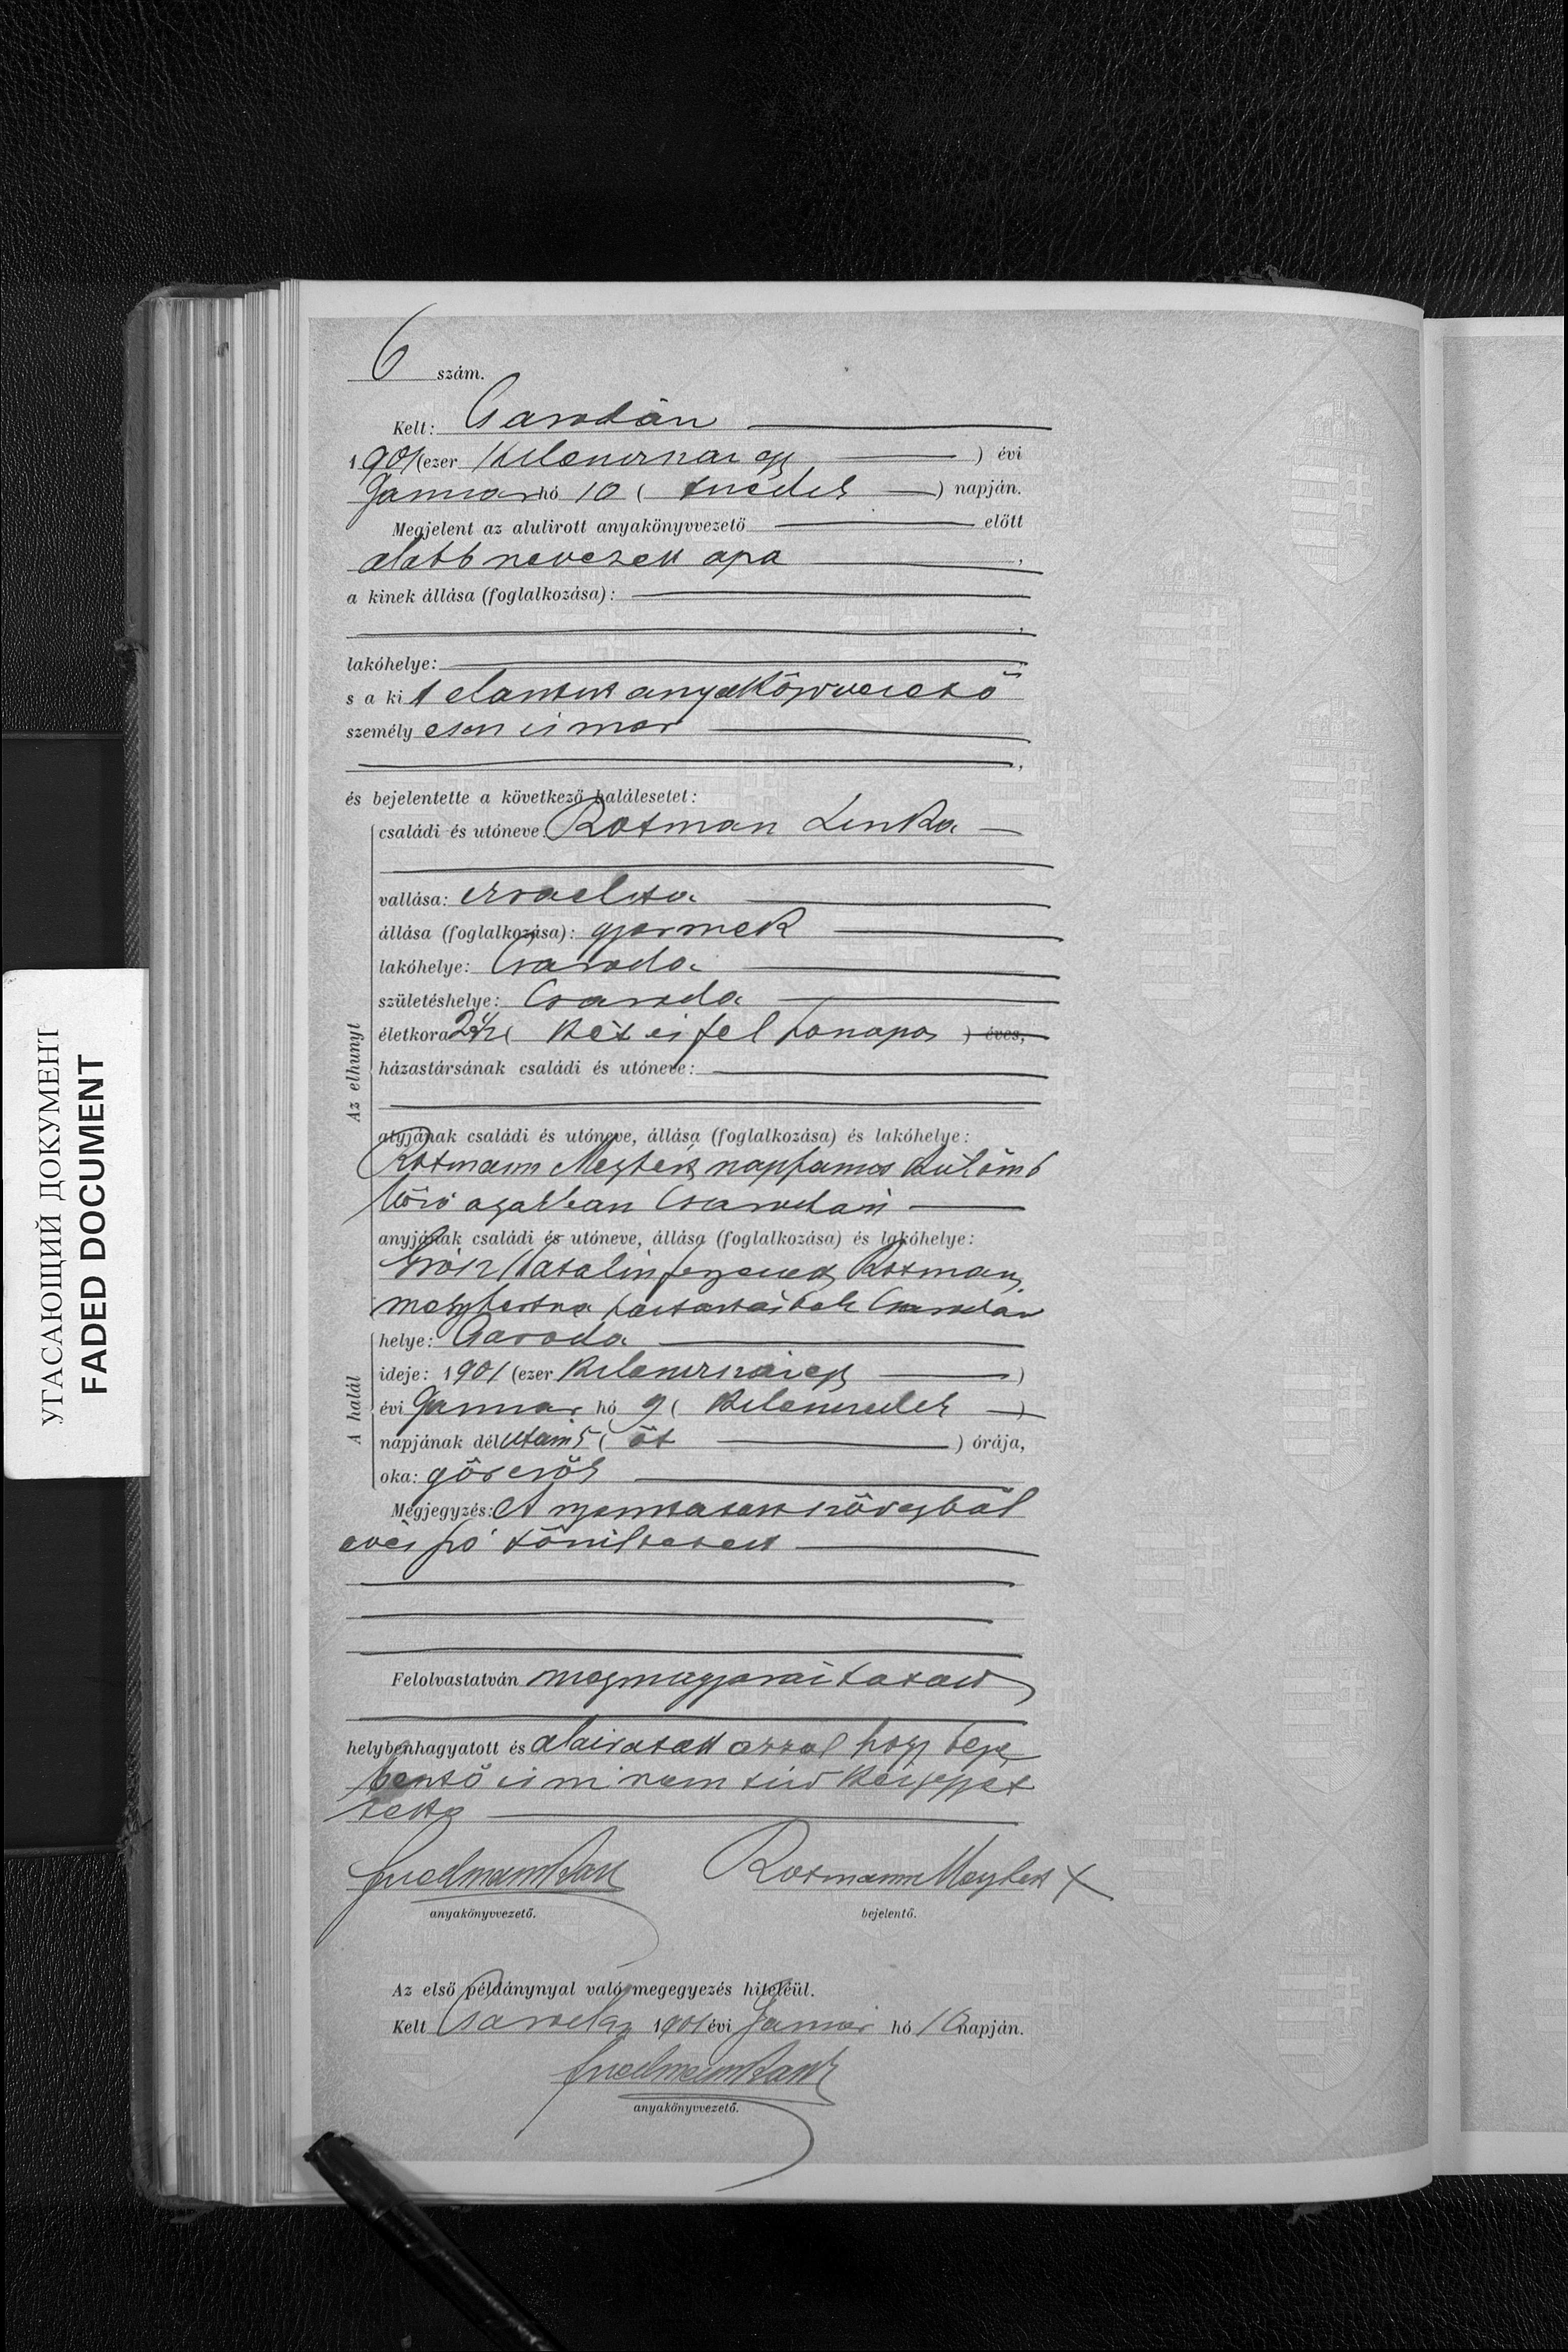 6 szám.
Kelt: Csarodán
1901 (ezer kilencszáz egy ) évi
Januar hó 10 ( tizedik ) napján.
Megjelent az alulirott anyakönyvvezető előtt
alabb nevezett apa ,
a kinek állása (foglalkozása):
lakóhelye:
s a kit alantirt anyakönyvvezető
személyesen ismer
és bejelentette a következő halálesetet:
Az elhunyt
családi és utóneve: Rotman Linka
vallása: izraelita
állása (foglalkozása): gyermek
lakóhelye: Csaroda
születéshelye: Csaroda
életkora: 2 1/2 ( két és fel honapos ) éves,
házastársának családi és utóneve:
atyjának családi és utóneve, állása (foglalkozása) és lakóhelye:
Rotmann napszamos külömb
böző agakban Csarodán
anyjának családi és utóneve, állása (foglalkozása) és lakóhelye:
Katalin Rotman
Csarodán
A halál
helye: Csaroda
ideje: 1901 (ezer kilencszáz egy )
évi Januar hó 9 ( kilencedik )
napjának délután 5 ( öt ) órája,
oka: görcsök
Megjegyzés: A nyomtatott szövegből
töröltetett
Felolvastatván megmagyaráztatott
helybenhagyatott és aláíratott azzal hogy beje
lentő írni nem tud kézjegyét
tette
Friedmann
anyakönyvvezető.
Rotmann X
bejelentő.
Az első példánynyal való megegyezés hiteléül.
Kelt Csarodán 1901 évi Januar hó 10 napján.
Friedmann
anyakönyvvezető.
УГАСАЮЩИЙ ДОКУМЕНТ
FADED DOCUMENT